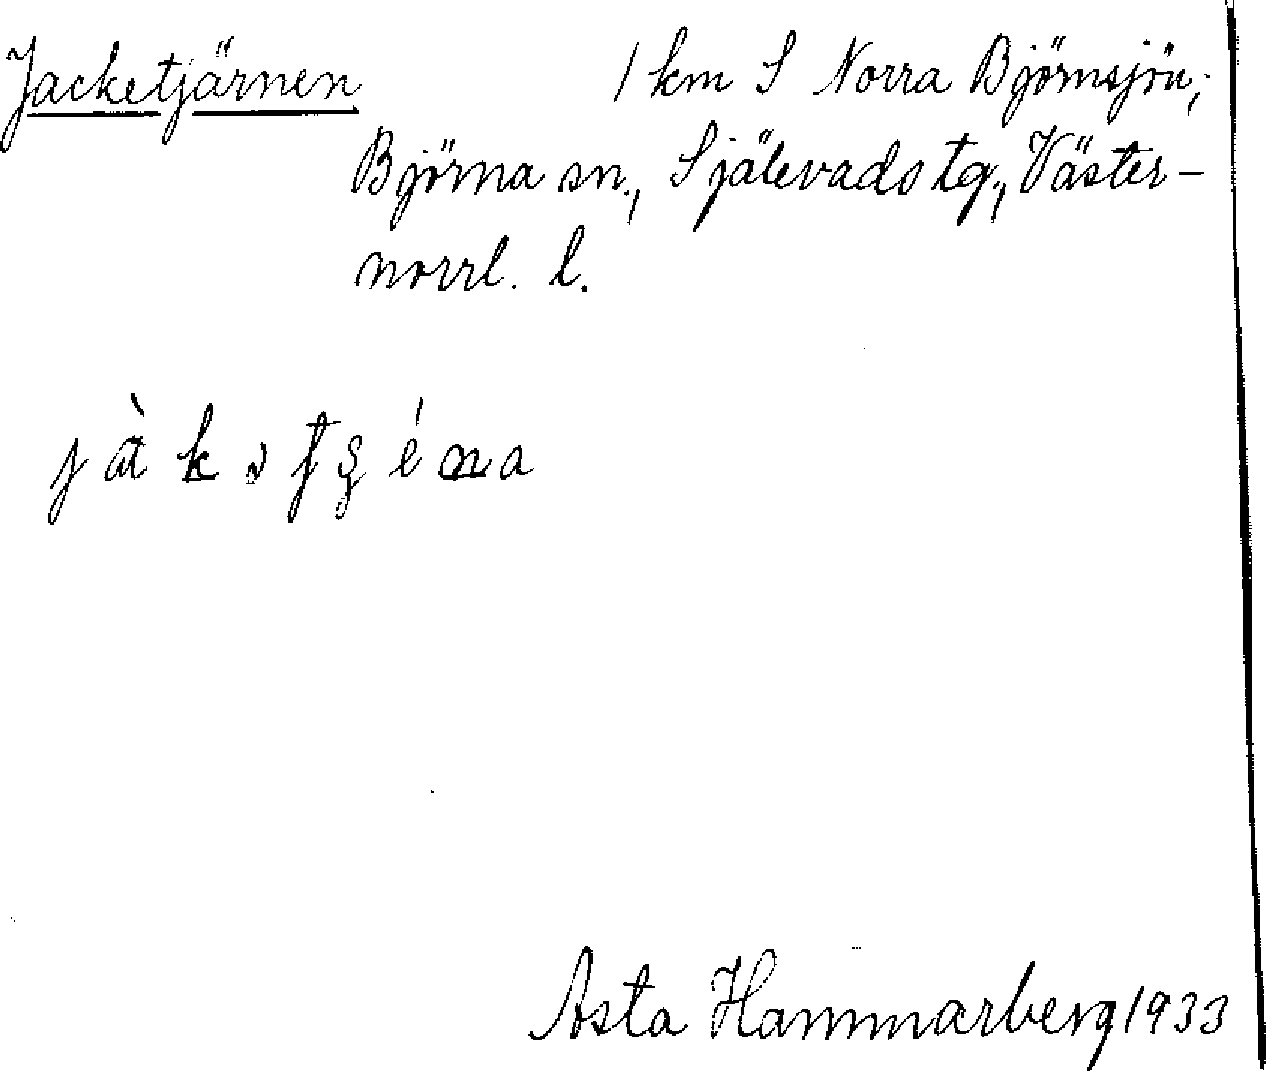 Jacketjärnen 1 km S Norra Björnsjön;
Björna sn., Själevads tg., Väster-
norrl. l.
Asta Hammarberg 1933